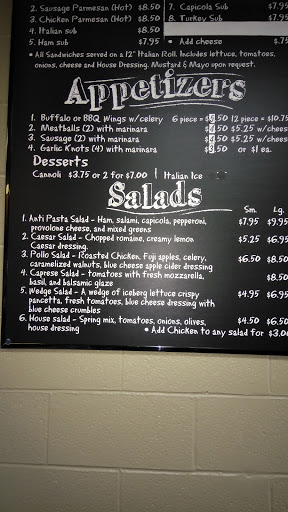 2. Sausage Parmesan (Hot) $8.50
7. Capicola Sub $7.95
3. Chicken Parmesan (Hot) $8.50
8. Turkey Sub
4. Italian sub $8.50
5. Ham sub $7.95
• Add cheese $.75
• All Sandwiches served on a 12" Italian Roll. Includes lettuce, tomatoes,
onions, cheese and House Dressing. Mustard & Mayo upon request.
Appetizers
1. Buffalo or BBQ Wings w/celery 6 piece = 12 piece = $10.75
2. Meatballs (2) with marinara .50 $5.25 w/cheese
3. Sausage (2) with marinara .50 $5.25 w/cheese
4. Garlic Knots (4) with marinara .50 or $1 ea.
Desserts
Cannoli $3.75 or 2 for $7.00 | Italian Ice
Salads
Sm. Lg.
1. Anti Pasta Salad - Ham, salami, capicola, pepperoni, $7.95 $9.95
provolone cheese, and mixed greens
2. Caesar Salad - Chopped romaine, creamy lemon $5.25 $6.95
Caesar dressing.
3. Pollo Salad - Roasted Chicken, Fuji apples, celery, $6.50 $8.50
caramelized walnuts, blue cheese apple cider dressing
4. Caprese Salad - tomatoes with fresh mozzarella, $8.50
basil, and balsamic glaze
5. Wedge Salad - A wedge of iceberg lettuce crispy $4.95 $6.95
pancetta, fresh tomatoes, blue cheese dressing with
blue cheese crumbles
6. House salad - Spring mix, tomatoes, onions, olives, $4.50 $6.50
house dressing
• Add Chicken to any salad for $3.00